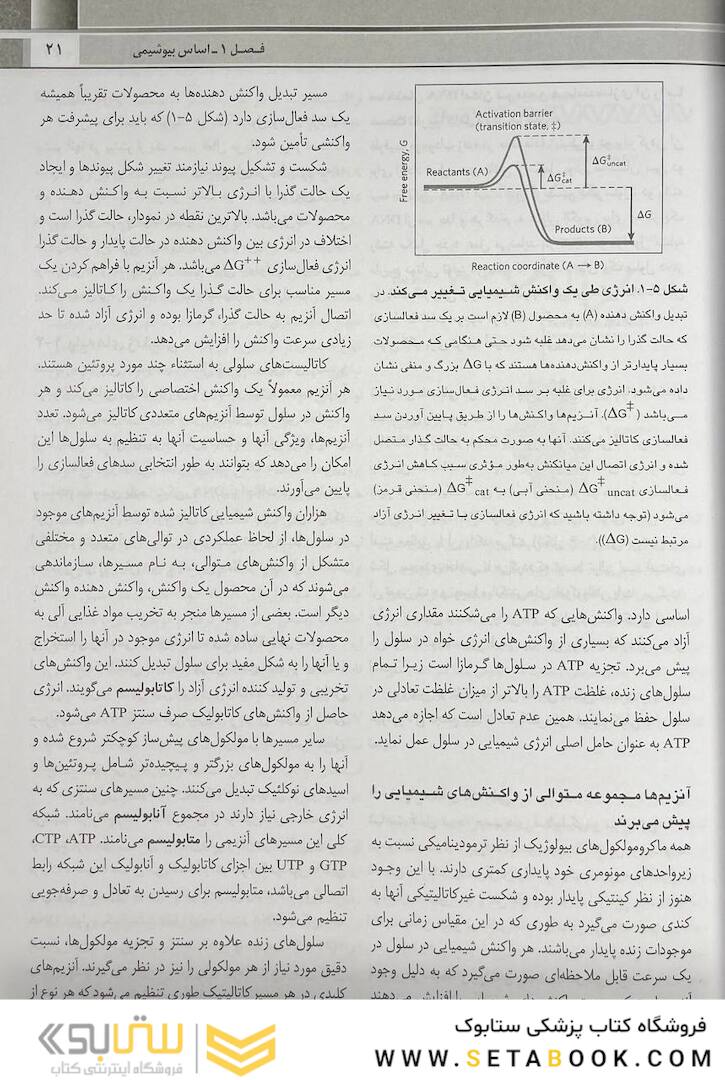 فصل ۱ ـ اساس بیوشیمی
۲۱
Activation barrier
(transition state, ‡)
Free energy, G
Reactants (A)
ΔG‡uncat
ΔG‡cat
ΔG
Products (B)
Reaction coordinate (A → B)
شکل ۵-۱. انرژی طی یک واکنش شیمیایی تغییر می‌کند. در
تبدیل واکنش دهنده (A) به محصول (B) لازم است بر یک سد فعالسازی
که حالت گذرا را نشان می‌دهد غلبه شود حتی هنگامی که محصولات
بسیار پایدارتر از واکنش‌دهنده‌ها هستند که با ΔG بزرگ و منفی نشان
داده می‌شود. انرژی برای غلبه بر سد انرژی فعال‌سازی مورد نیاز
می‌باشد (ΔG‡). آنزیم‌ها واکنش‌ها را از طریق پایین آوردن سد
فعالسازی کاتالیز می‌کنند. آنها به صورت محکم به حالت گذار متصل
شده و انرژی اتصال این میانکنش به‌طور مؤثری سبب کاهش انرژی
فعالسازی ΔG‡ uncat (منحنی آبی) به ΔG‡ cat (منحنی قرمز)
می‌شود (توجه داشته باشید که انرژی فعالسازی با تغییر انرژی آزاد
مرتبط نیست (ΔG)).
اساسی دارد. واکنش‌هایی که ATP را می‌شکنند مقداری انرژی
آزاد می‌کنند که بسیاری از واکنش‌های انرژی خواه در سلول را
پیش می‌برد. تجزیه ATP در سلول‌ها گرمازا است زیرا تمام
سلول‌های زنده، غلظت ATP را بالاتر از میزان غلظت تعادلی در
سلول حفظ می‌نمایند. همین عدم تعادل است که اجازه می‌دهد
ATP به عنوان حامل اصلی انرژی شیمیایی در سلول عمل نماید.
آنزیم‌ها مجموعه متوالی از واکنش‌های شیمیایی را
پیش می‌برند
همه ماکرومولکول‌های بیولوژیک از نظر ترمودینامیکی نسبت به
زیرواحدهای مونومری خود پایداری کمتری دارند. با این وجود
هنوز از نظر کینتیکی پایدار بوده و شکست غیرکاتالیتیکی آنها به
کندی صورت می‌گیرد به طوری که در این مقیاس زمانی برای
موجودات زنده پایدار می‌باشند. هر واکنش شیمیایی در سلول در
یک سرعت قابل ملاحظه‌ای صورت می‌گیرد که به دلیل وجود
مسیر تبدیل واکنش دهنده‌ها به محصولات تقریباً همیشه
یک سد فعال‌سازی دارد (شکل ۵-۱) که باید برای پیشرفت هر
واکنشی تأمین شود.
شکست و تشکیل پیوند نیازمند تغییر شکل پیوندها و ایجاد
یک حالت گذرا با انرژی بالاتر نسبت به واکنش دهنده و
محصولات می‌باشد. بالاترین نقطه در نمودار، حالت گذرا است و
اختلاف در انرژی بین واکنش دهنده در حالت پایدار و حالت گذرا
انرژی فعال‌سازی ΔG++ می‌باشد. هر آنزیم با فراهم کردن یک
مسیر مناسب برای حالت گذرا یک واکنش را کاتالیز می‌کند.
اتصال آنزیم به حالت گذرا، گرمازا بوده و انرژی آزاد شده تا حد
زیادی سرعت واکنش را افزایش می‌دهد.
کاتالیست‌های سلولی به استثناء چند مورد پروتئین هستند.
هر آنزیم معمولاً یک واکنش اختصاصی را کاتالیز می‌کند و هر
واکنش در سلول توسط آنزیم‌های متعددی کاتالیز می‌شود. تعدد
آنزیم‌ها، ویژگی آنها و حساسیت آنها به تنظیم به سلول‌ها این
امکان را می‌دهد که بتوانند به طور انتخابی سدهای فعالسازی را
پایین می‌آورند.
هزاران واکنش شیمیایی کاتالیز شده توسط آنزیم‌های موجود
در سلول‌ها، از لحاظ عملکردی در توالی‌های متعدد و مختلفی
متشکل از واکنش‌های متوالی، به نام مسیرها، سازماندهی
می‌شوند که در آن محصول یک واکنش، واکنش دهنده واکنش
دیگر است. بعضی از مسیرها منجر به تخریب مواد غذایی آلی به
محصولات نهایی ساده شده تا انرژی موجود در آنها را استخراج
و یا آنها را به شکل مفید برای سلول تبدیل کنند. این واکنش‌های
تخریبی و تولید کننده انرژی آزاد را کاتابولیسم می‌گویند. انرژی
حاصل از واکنش‌های کاتابولیک صرف سنتز ATP می‌شود.
سایر مسیرها با مولکول‌های پیش‌ساز کوچکتر شروع شده و
آنها را به مولکول‌های بزرگتر و پیچیده‌تر شامل پروتئین‌ها و
اسیدهای نوکلئیک تبدیل می‌کنند. چنین مسیرهای سنتزی که به
انرژی خارجی نیاز دارند در مجموع آنابولیسم می‌نامند. شبکه
کلی این مسیرهای آنزیمی را متابولیسم می‌نامند. CTP ،ATP،
GTP و UTP بین اجزای کاتابولیک و آنابولیک این شبکه رابط
اتصالی می‌باشد، متابولیسم برای رسیدن به تعادل و صرفه‌جویی
تنظیم می‌شود.
سلول‌های زنده علاوه بر سنتز و تجزیه مولکول‌ها، نسبت
دقیق مورد نیاز از هر مولکولی را نیز در نظر می‌گیرند. آنزیم‌های
کلیدی در هر مسیر کاتالیتیک طوری تنظیم می‌شود که هر نوع از
ستابوک
فروشگاه اینترنتی کتاب
فروشگاه کتاب پزشکی ستابوک
WWW.SETABOOK.COM